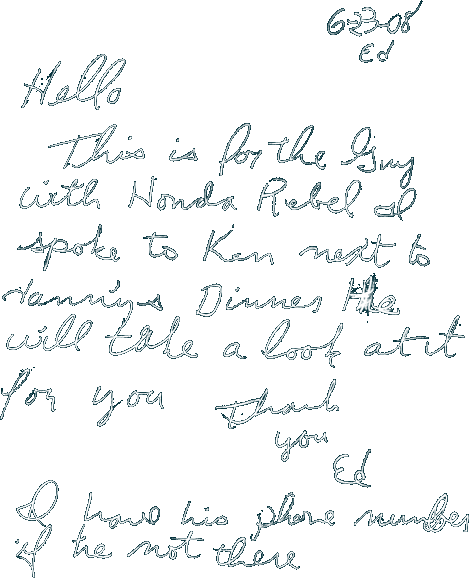 6-23-08
Ed
Hello
This is for the Guy
with Honda Rebel I
spoke to Ken next to
Dinner He
will take a look at it
for you Thank
you
Ed
I have his phone number
if he not there